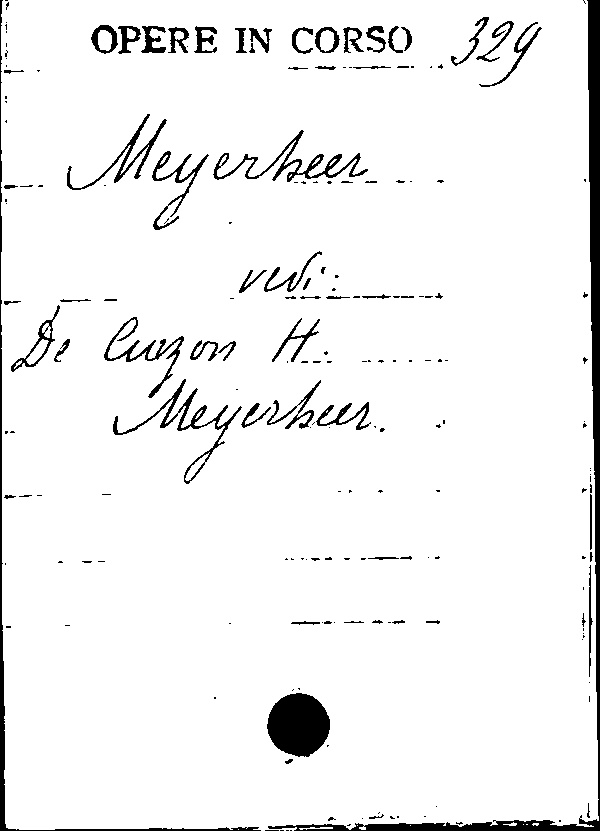 OPERE IN CORSO 329
Meyerbeer
vedi:
De Curzon H.
Meyerbeer.